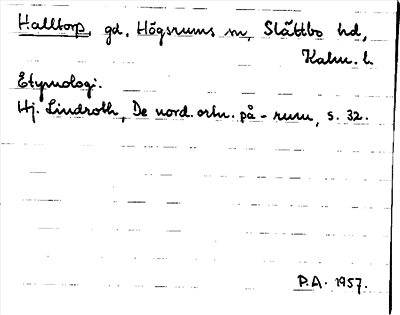 Halltorp, gd, Högsrums sn, Slättbo hd,
Kalm. l.
Etymologi.
Hj. Lindroth, De nord. ortn. på -rum, s. 32.
P.A. 1957.